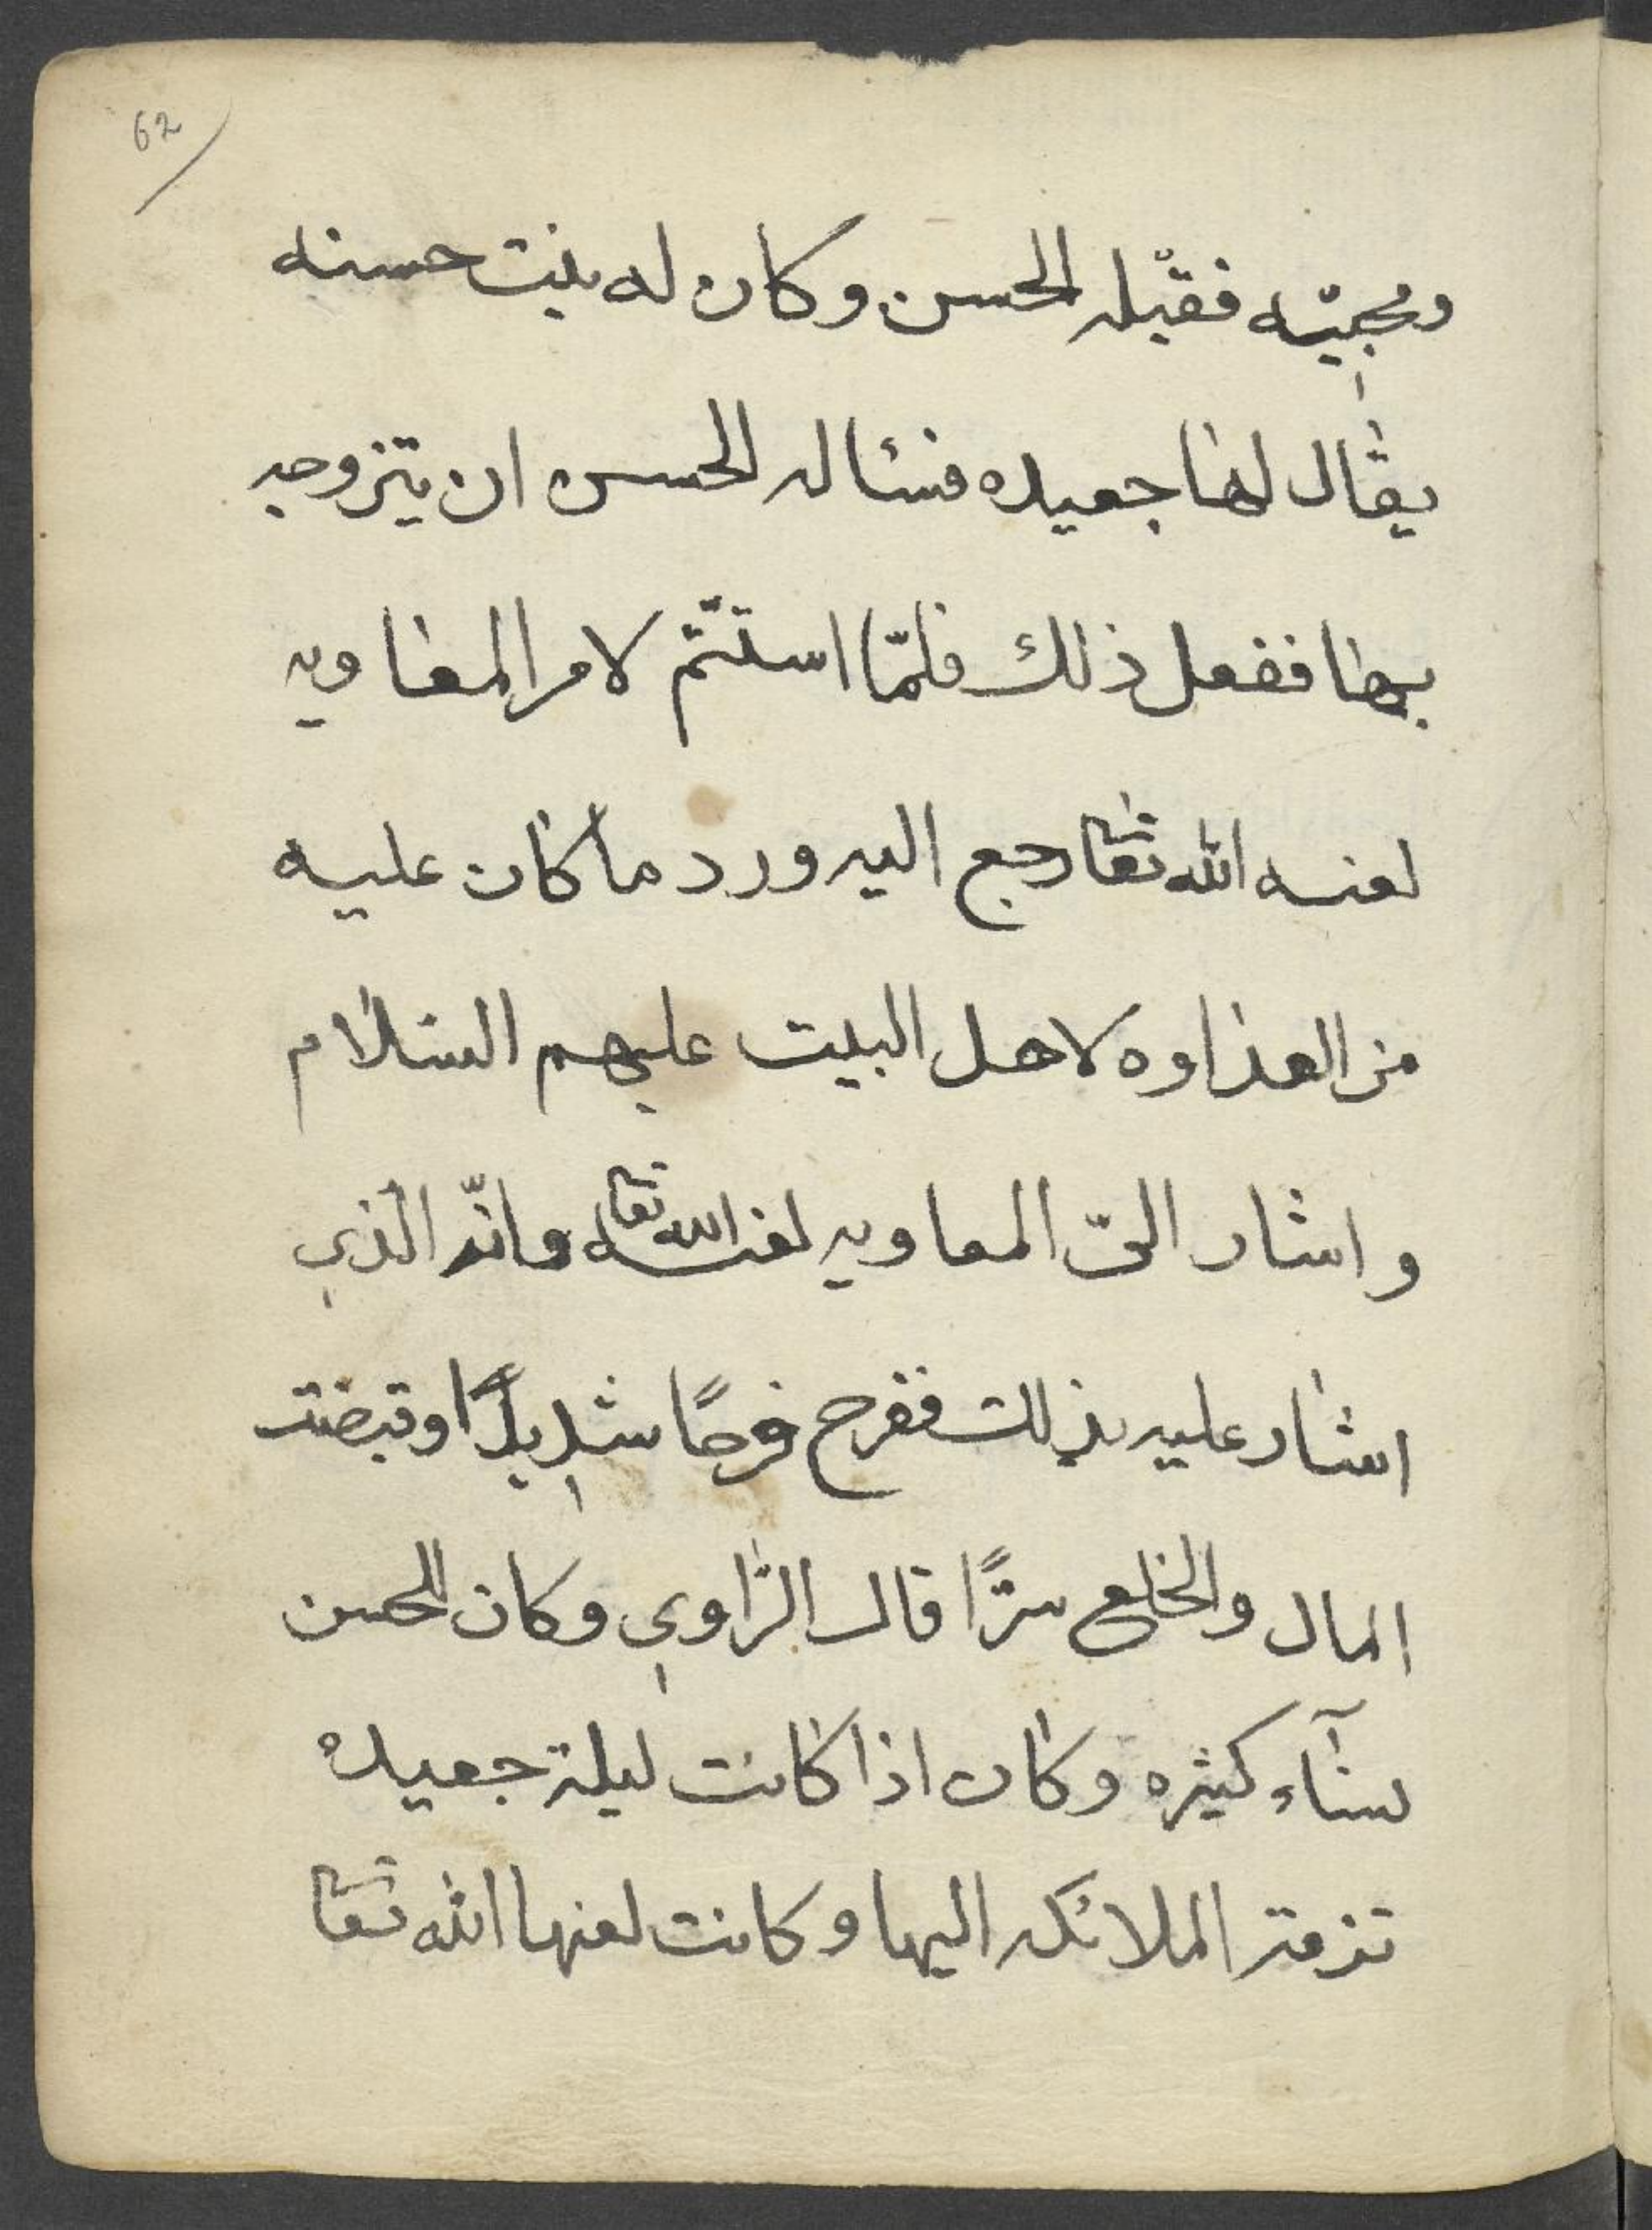 62
ومجيّه فقبّله الحسن وكان له بنت حسنه
يقال لها جعيده فسئاله الحسن ان يتزوجه
بها ففعل ذلك فلمّا استتّم لامر المعاويه
لعنه الله تعا رجع اليه ورد ما كان عليه
من العداوه لاهل البيت عليهم السلام
واشار الىّ المعاويه لعنه الله تعا وانّه الّذي
اشار عليه بذلك ففرح فرحًا شديدًا وقبضت
المال والخلع سرًّا قال الرّاوي وكان الحسن
نسآء كثيره وكان اذا كانت ليلة جعيده
تزفته الملائكه اليها وكانت لعنها الله تعا